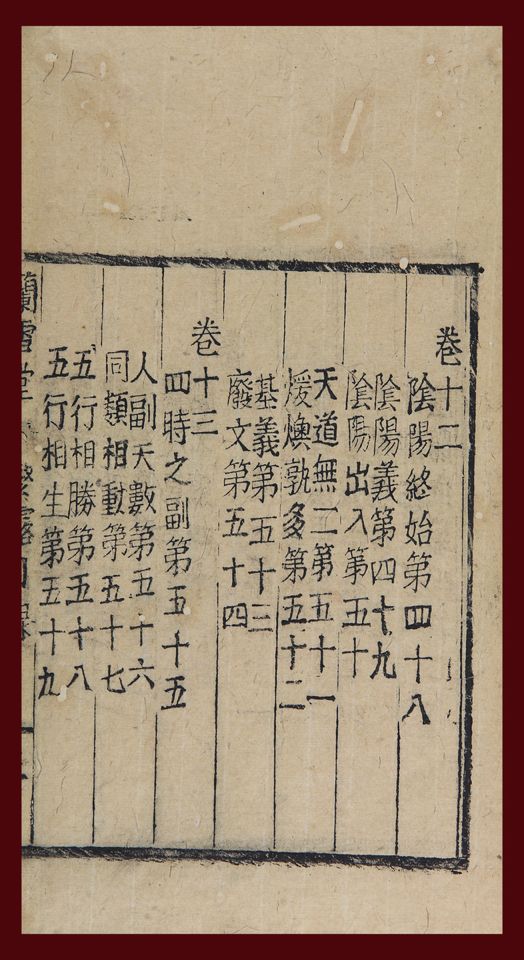 卷十二
陰陽終始第四十八
陰陽義第四十九
陰陽出入第五十
天道無二第五十一
煖燠孰多第五十二
基義第五十三
廢文第五十四
卷十三
四時之副第五十五
人副天數第五十六
同類相動第五十七
五行相勝第五十八
五行相生第五十九
蘭雪堂